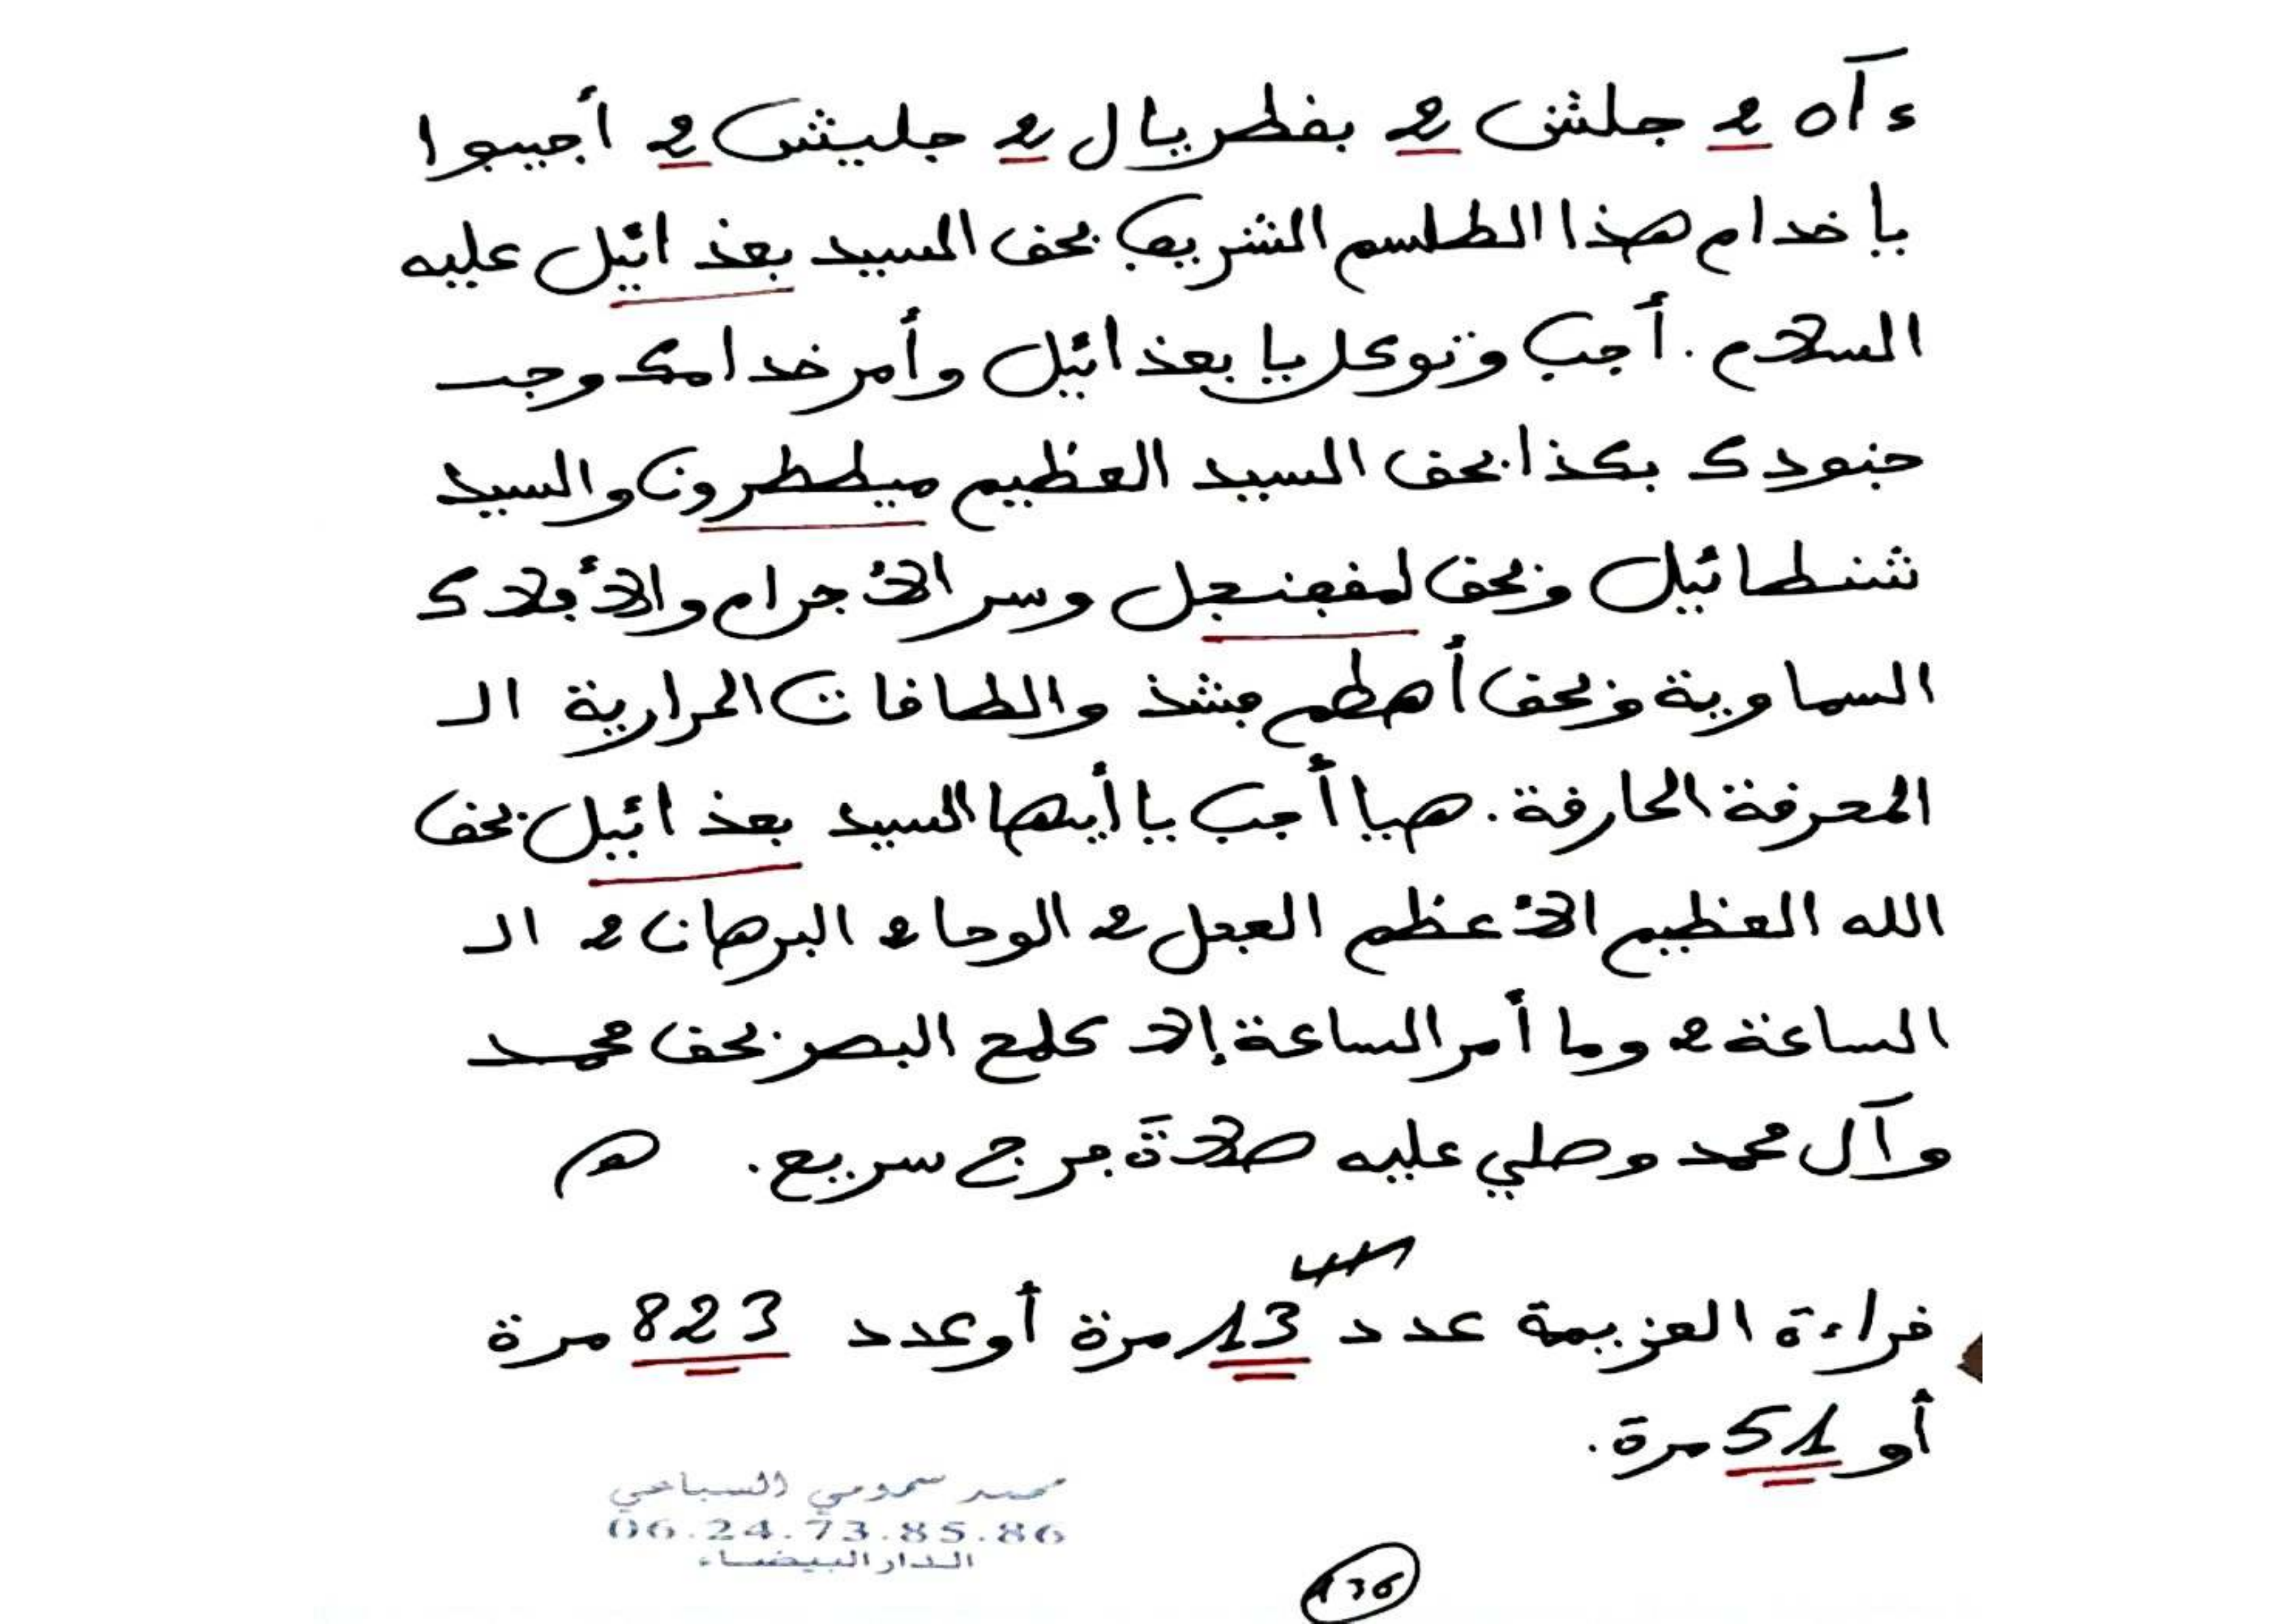 ءآه 2 جلش 2 بقطريال 2 جليش 2 أجيبوا
يا خدام هذا الطلسم الشريف بحق السيد بعذائيل عليه
السلام. أجب وتوكل يا بعذائيل وأمر خدامك وجـ
جنودك بكذا بحق السيد العظيم ميططرون والسيد
شنطائيل وبحق لمقفنجل وسر الأجرام والأفلاك
السماوية وبحق أهطم فشذ والطاقات الحرارية الـ
المحرقة الحارقة. هيا أجب يا أيها السيد بعذائيل بحق
الله العظيم الأعظم العجل 2 الوحا 2 البرهان 2 الـ
الساعة 2 وما أمر الساعة إلا كلمح البصر بحق محمد
وآل محمد وصلي عليه صلاة فرج سريع. ه
قراءة العزيمة عدد 13 مرة أو عدد 823 مرة
أو 51 مرة.
السباعي
06.24.73.85.86
الدار البيضاء
136